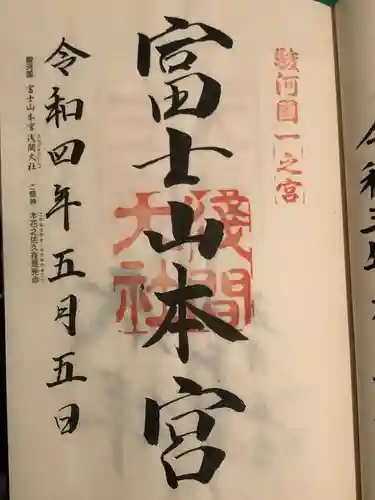 駿河國一之宮
富士山本宮
淺間大社
令和四年五月五日
駿河国 富士山本宮浅間大社 ご祭神 木花之佐久夜毘売命